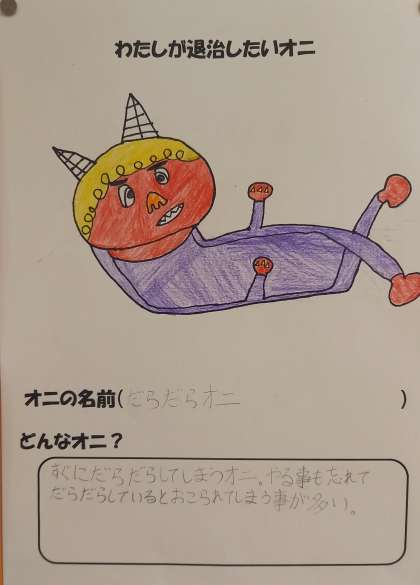 わたしが退治したいオニ
オニの名前(だらだらオニ)
どんなオニ？
すぐにだらだらしてしまうオニ。やる事も忘れて
だらだらしているとおこられてしまう事が多い。